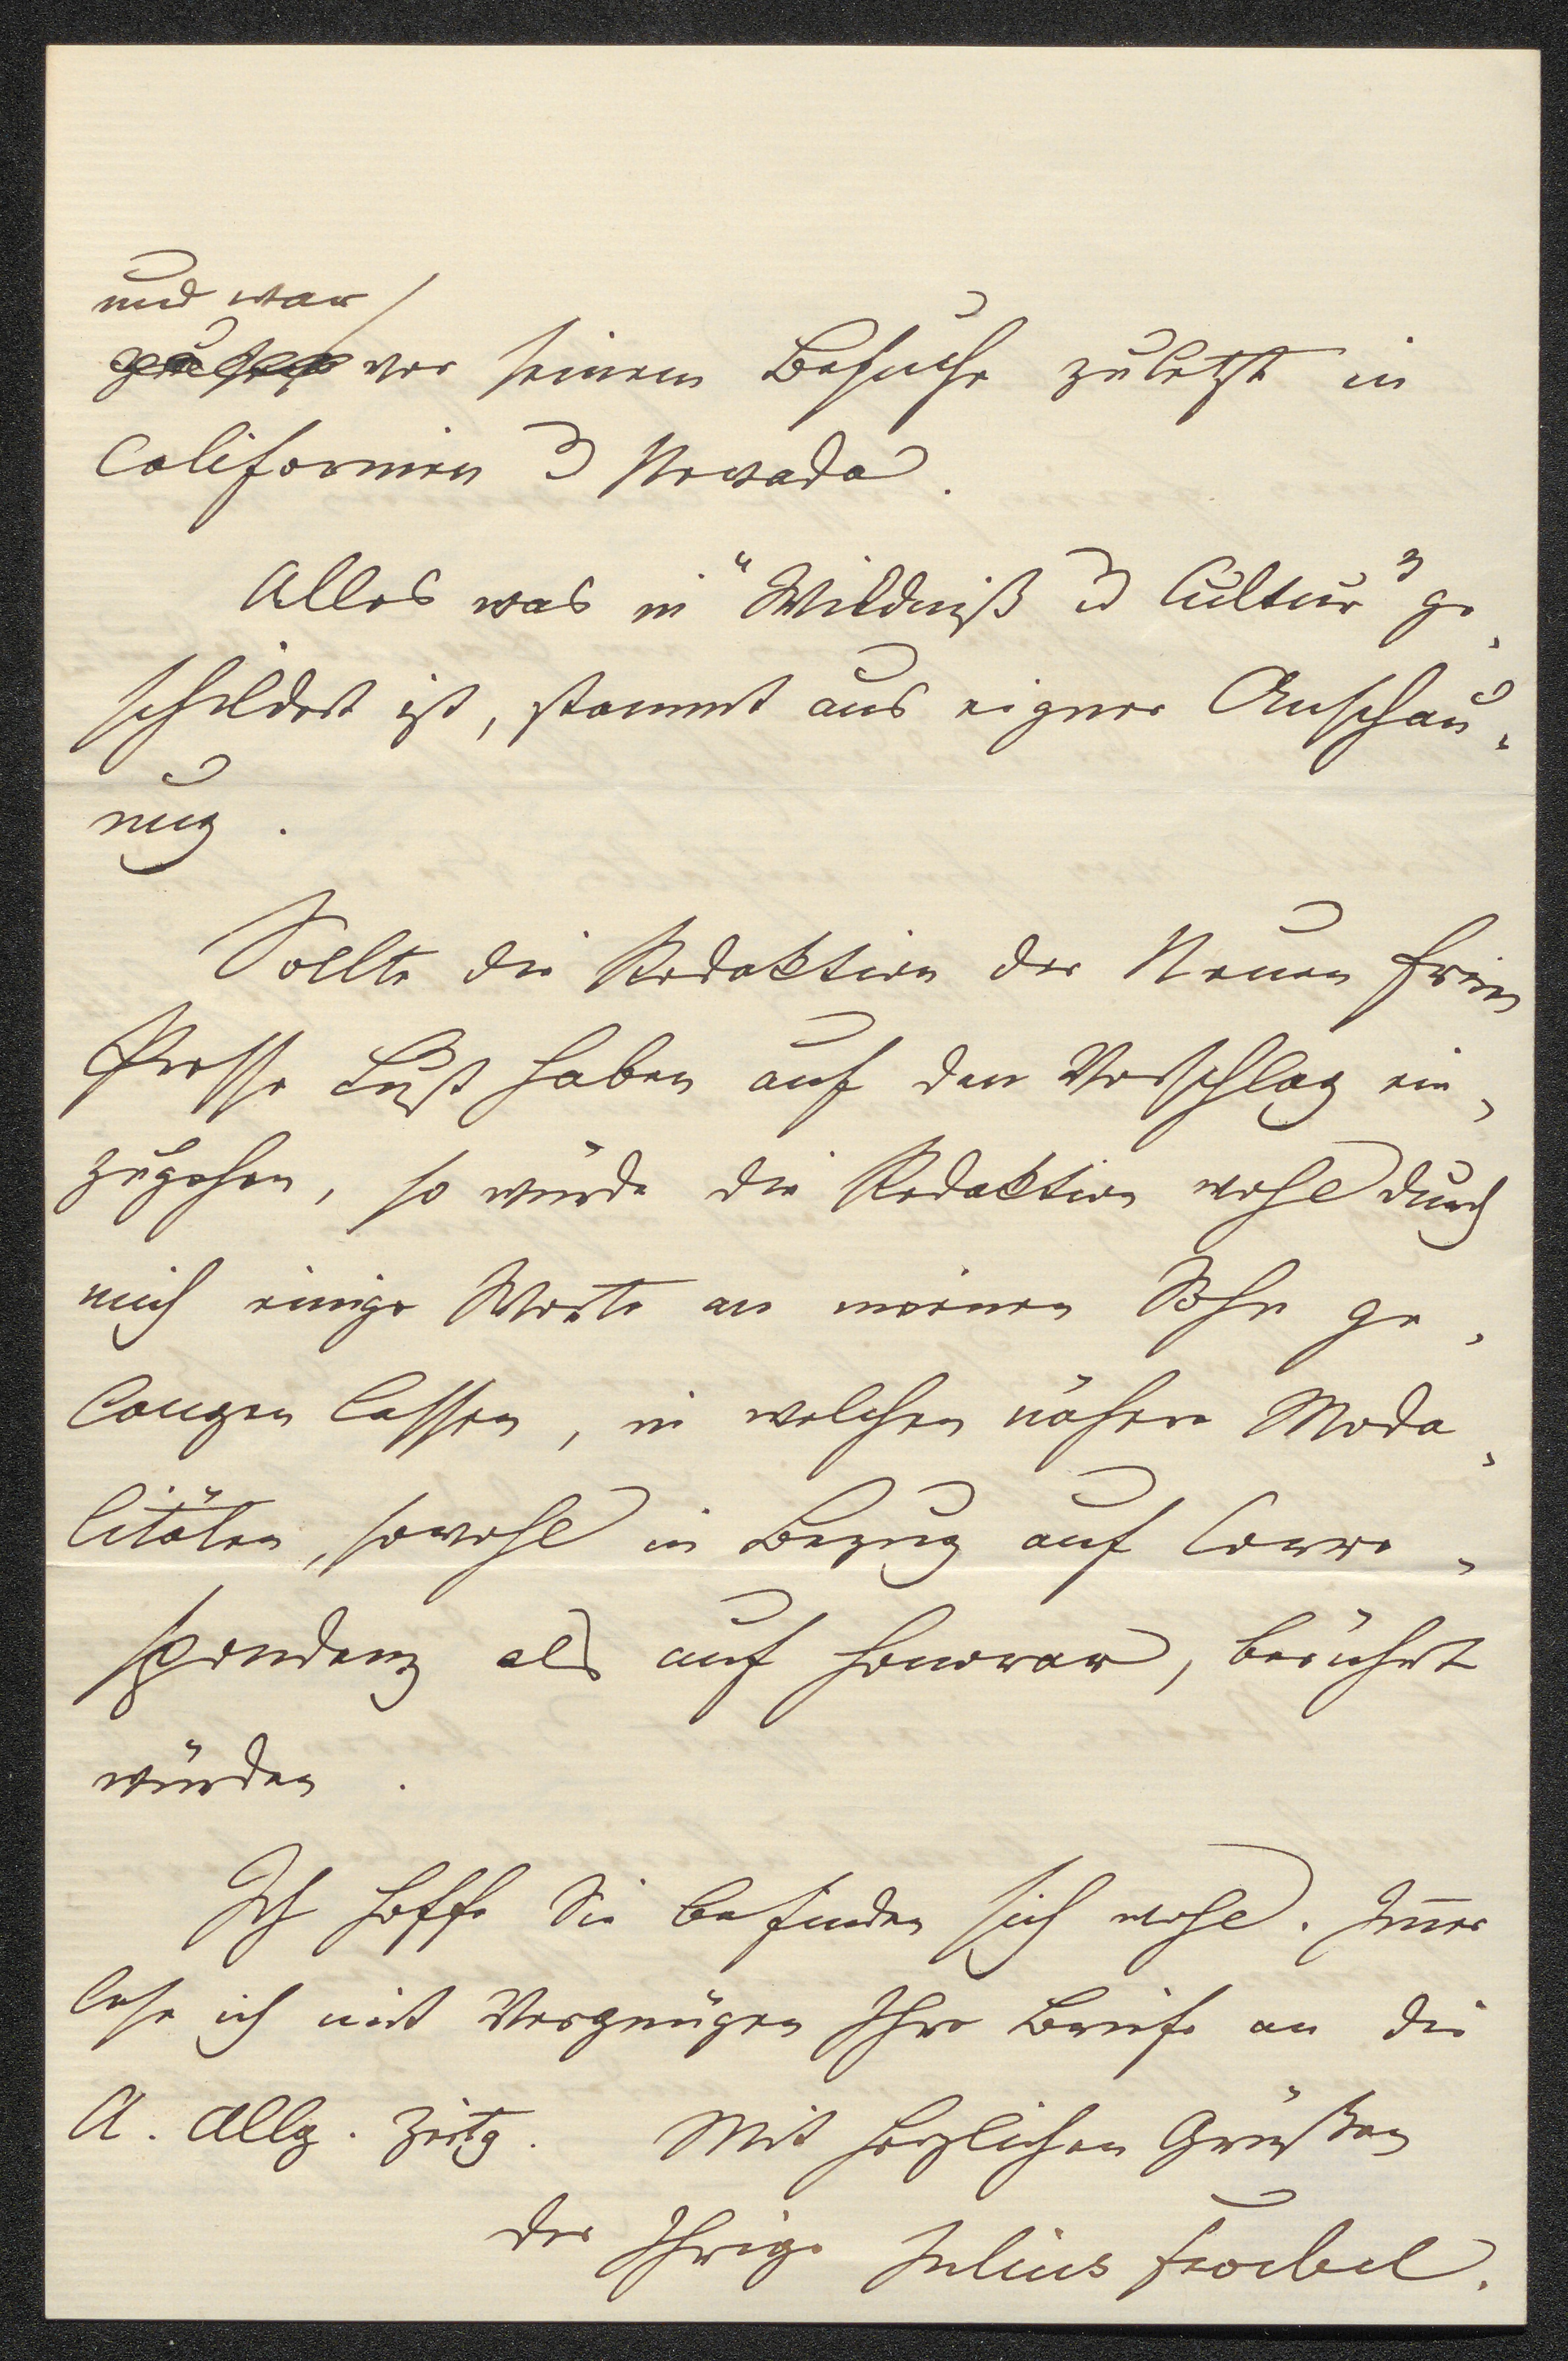 und war
vor seinem Besuche zuletzt in
Californien & Nevada.
Alles was in "Wildniß & Cultur" ge-
schildert ist, stammt aus eigner Anschau-
ung.
Sollte die Redaktion der Neuen freien
Presse Lust haben auf den Vorschlag ein-
zugehen, so würde die Redaktion wohl durch
mich einige Worte an meinen Sohn ge-
langen lassen, in welchen nähere Moda-
litäten, sowohl in Bezug auf Corre-
spondenz als auf Honorar, berührt
würden.
Ich hoffe Sie befinden sich wohl. Im̄er
lese ich mit Vergnügen Ihre Briefe an die
A. Allg. Zeitg. Mit herzlichen Grüßen
der Ihrige Julius Froebel.